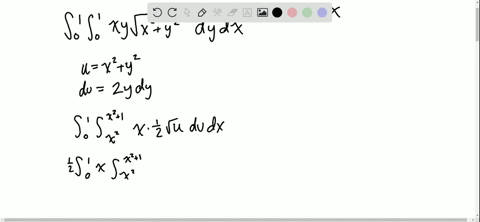 ∫₀¹ ∫₀¹ xy√(x²+y²) dy dx x
u = x²+y²
du = 2y dy
∫₀¹ ∫_{x²}^{x²+1} x · ½ √u du dx
½ ∫₀¹ x ∫_{x²}^{x²+1}